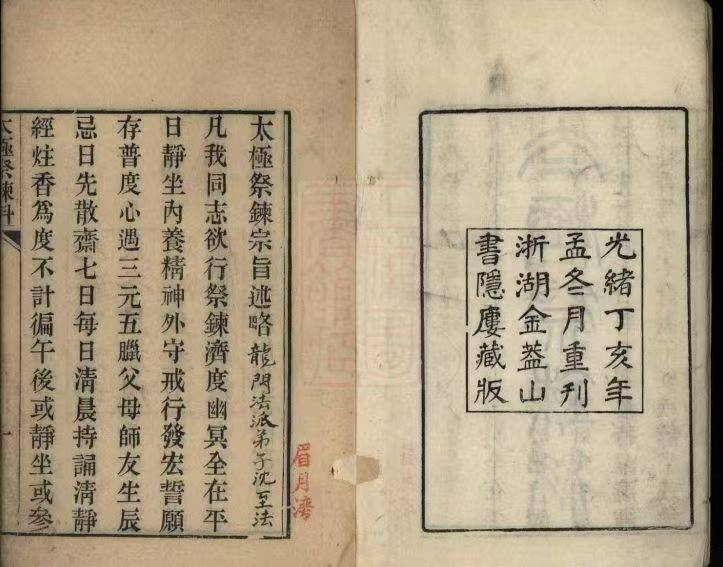 光緒丁亥年
孟冬月重刊
浙湖金葢山
書隱廔藏版
太極祭鍊宗旨述略 龍門法派弟子沈至法
凡我同志欲行祭鍊濟度幽冥全在平
日靜坐內養精神外守戒行發宏誓願
存普度心遇三元五臘父母師友生辰
忌日先散齋七日每日清晨持誦清靜
經炷香爲度不計徧午後或靜坐或參
太極祭鍊科
一
眉月